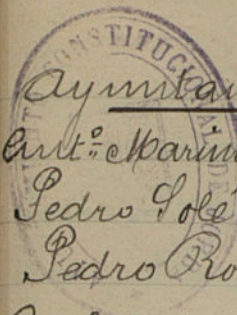 CONSTITUCIONAL DE
Ayuntam
Antº Marim
Pedro Solé
Pedro Ro